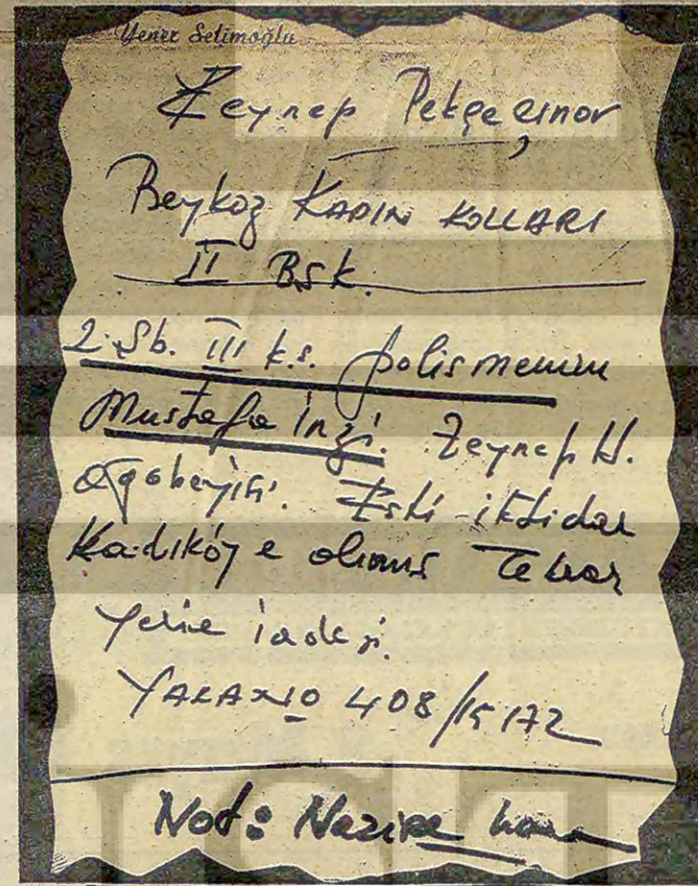 Yener Selimoğlu
Zeynep
Beykoz KADIN KOLLARI
II BŞK.
2. Şb. III k.s. polis memuru
Mustafa İnği. Zeynep H.
ağabeyisi. Eski iktidar
Kadıköy'e almış Tekrar
yerine iadesi.
YAKA NO 408/15172
Not: Nazire hanım